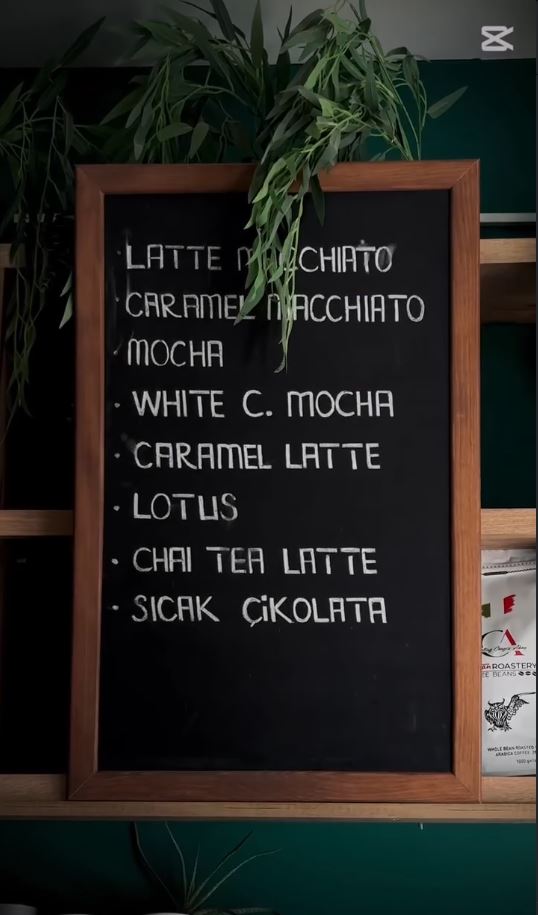 · LATTE MACCHIATO
· CARAMEL MACCHIATO
· MOCHA
· WHITE C. MOCHA
· CARAMEL LATTE
· LOTUS
· CHAI TEA LATTE
· SICAK ÇİKOLATA
CA
ROASTERY
EE BEANS
WHOLE BEAN ROASTED
ARABICA COFFEE